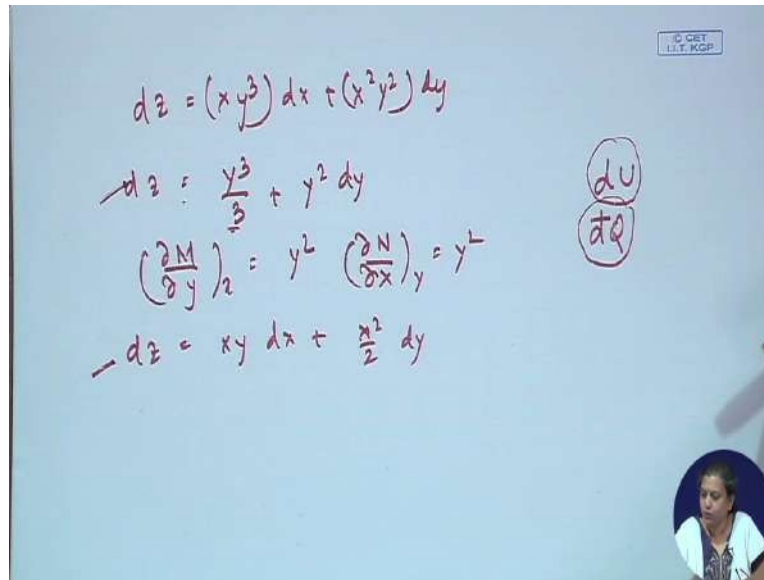 © CET
I.I.T. KGP
dz = (xy³) dx + (x²y²) dy
dz = y³/3 + y² dy
dU
đQ
(∂M/∂y)₂ = y² (∂N/∂x)y = y²
dz = xy dx + x²/2 dy